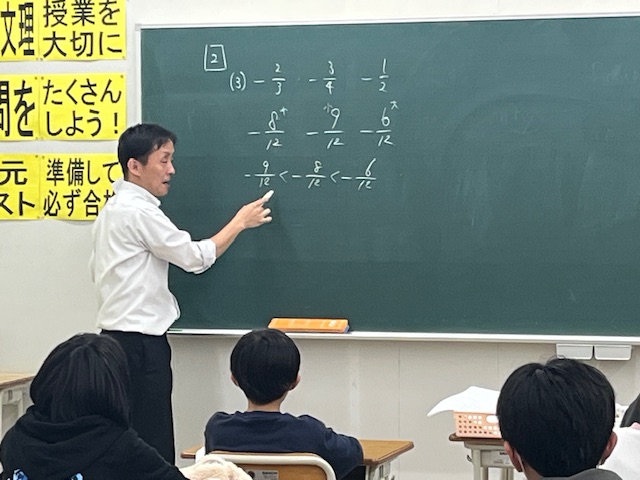 文理
授業を
大切に
問を
たくさん
しよう！
元
スト
準備して
必ず合格
2
(3) -2/3 -3/4 -1/2
-8/12 中 -9/12 小 -6/12 大
-9/12 < -8/12 < -6/12